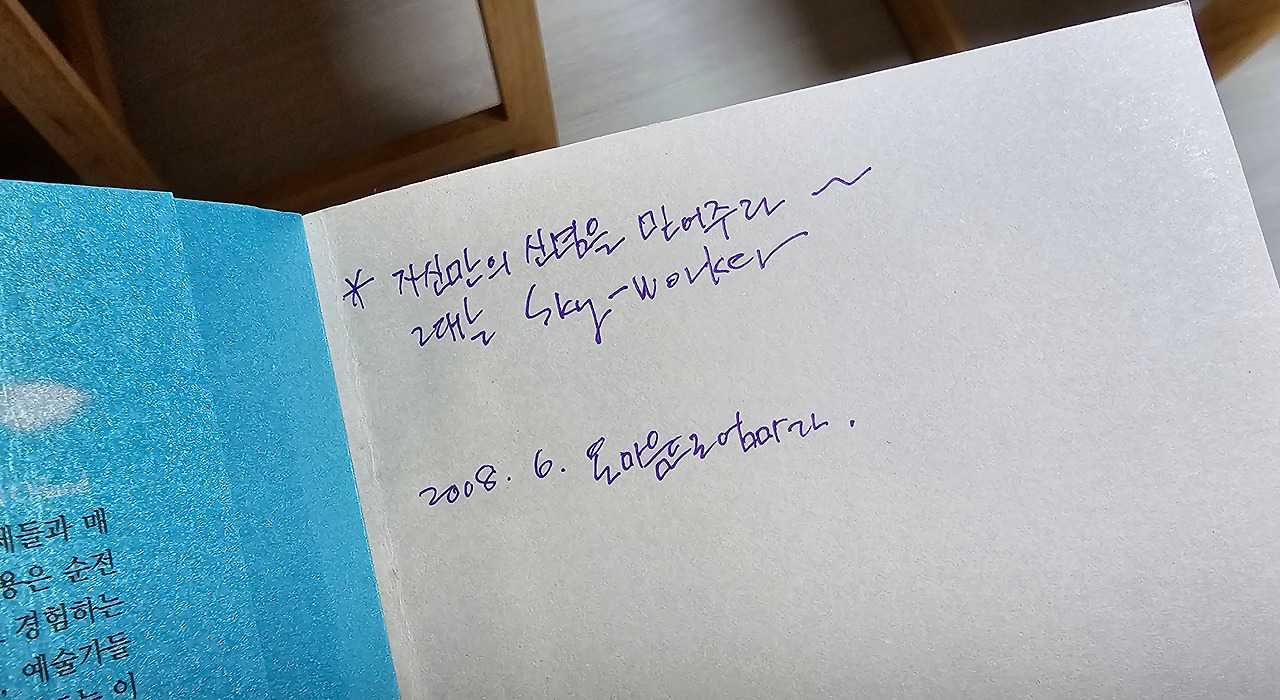 재들과 매
용은 순전
경험하는
예술가들
이
* 자신만의 신념을 믿어주라 ~
그대는 Sky-worker
2008. 6. 온마음으로 엄마가.